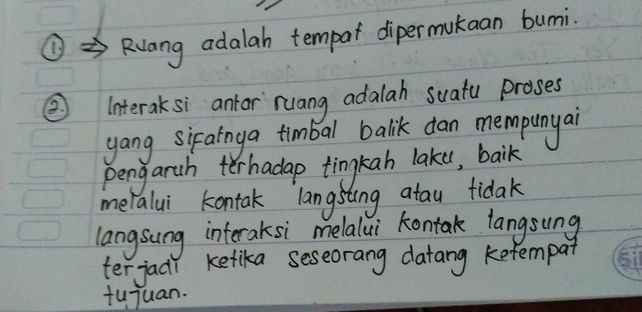 ① ⇒ Ruang adalah tempat dipermukaan bumi.
② Interaksi antar ruang adalah suatu proses
yang sifatnya timbal balik dan mempunyai
pengaruh terhadap tingkah laku, baik
melalui kontak langsung atau tidak
langsung interaksi melalui kontak langsung
terjadi ketika seseorang datang ketempat
tujuan.